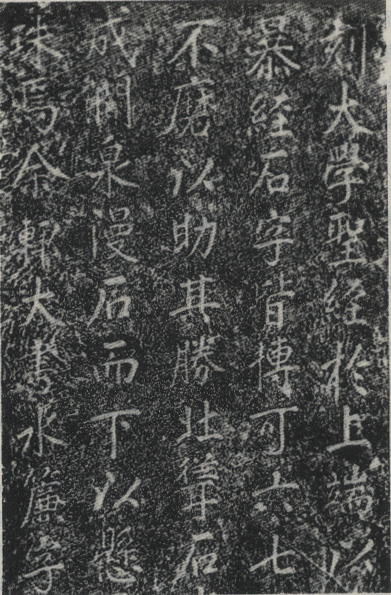 刻大學聖經於上端
暴經石字皆博可六七
不磨以助其勝北石
成泉漫石而下以懸
珠焉余大書水簾字